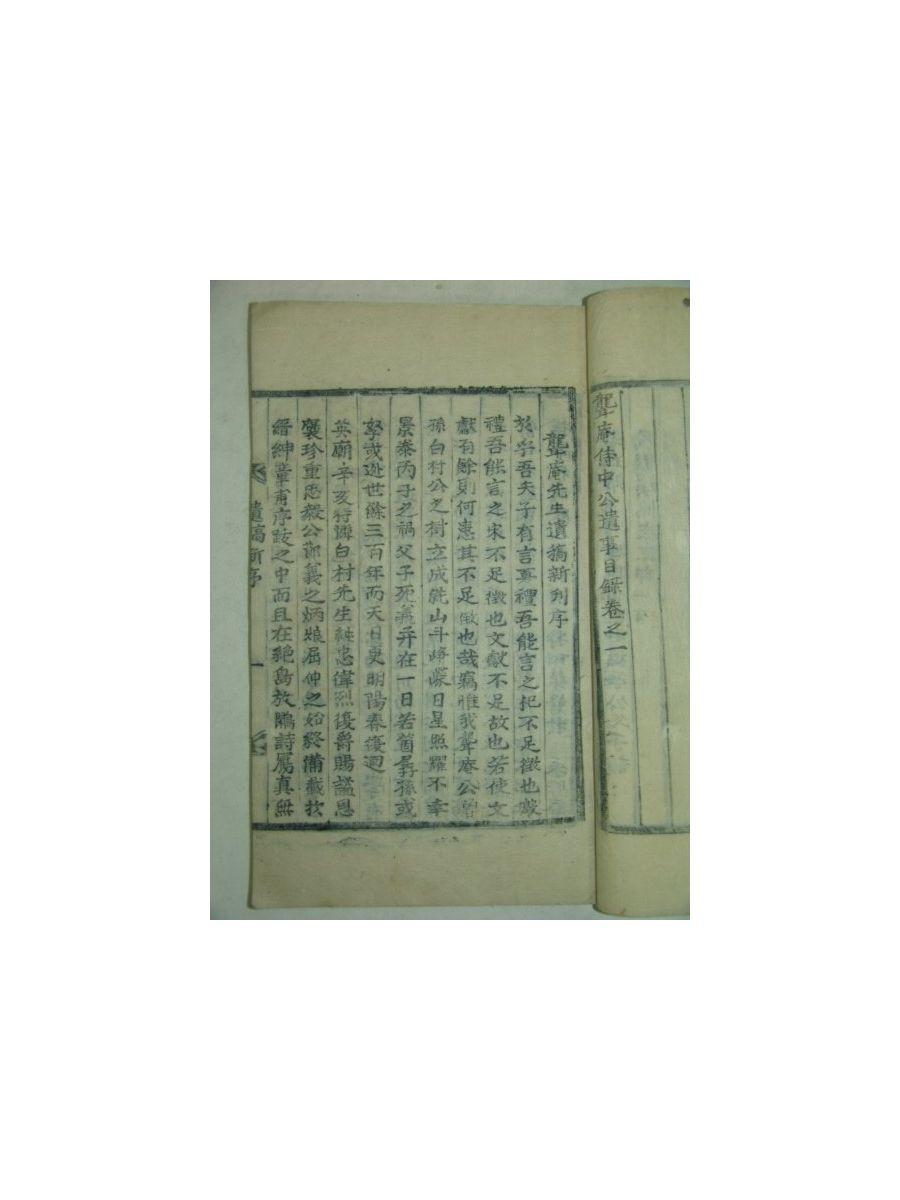 聾庵侍中公遺事目錄卷之一
聾庵先生遺稿新刊序
於乎吾夫子有言夏禮吾能言之杞不足徵也殷
禮吾能言之宋不足徵也文獻不足故也若使文
獻有餘則何患其不足徵也哉竊惟我聾庵公曾
孫白村公之樹立成就山斗嵬嶪日星照耀不幸
景泰丙子之禍父子死義并在一日若箇孱孫或
孥或逊世餘三百年而天日更明陽春復廻
英廟辛亥特憐白村先生純忠偉烈復爵賜諡恩
褒珍重忠毅公節義之炳烺屈伸之始終備載於
縉紳章甫序跋之中而且在絶島放鵰詩厲真無
遺稿新序
一